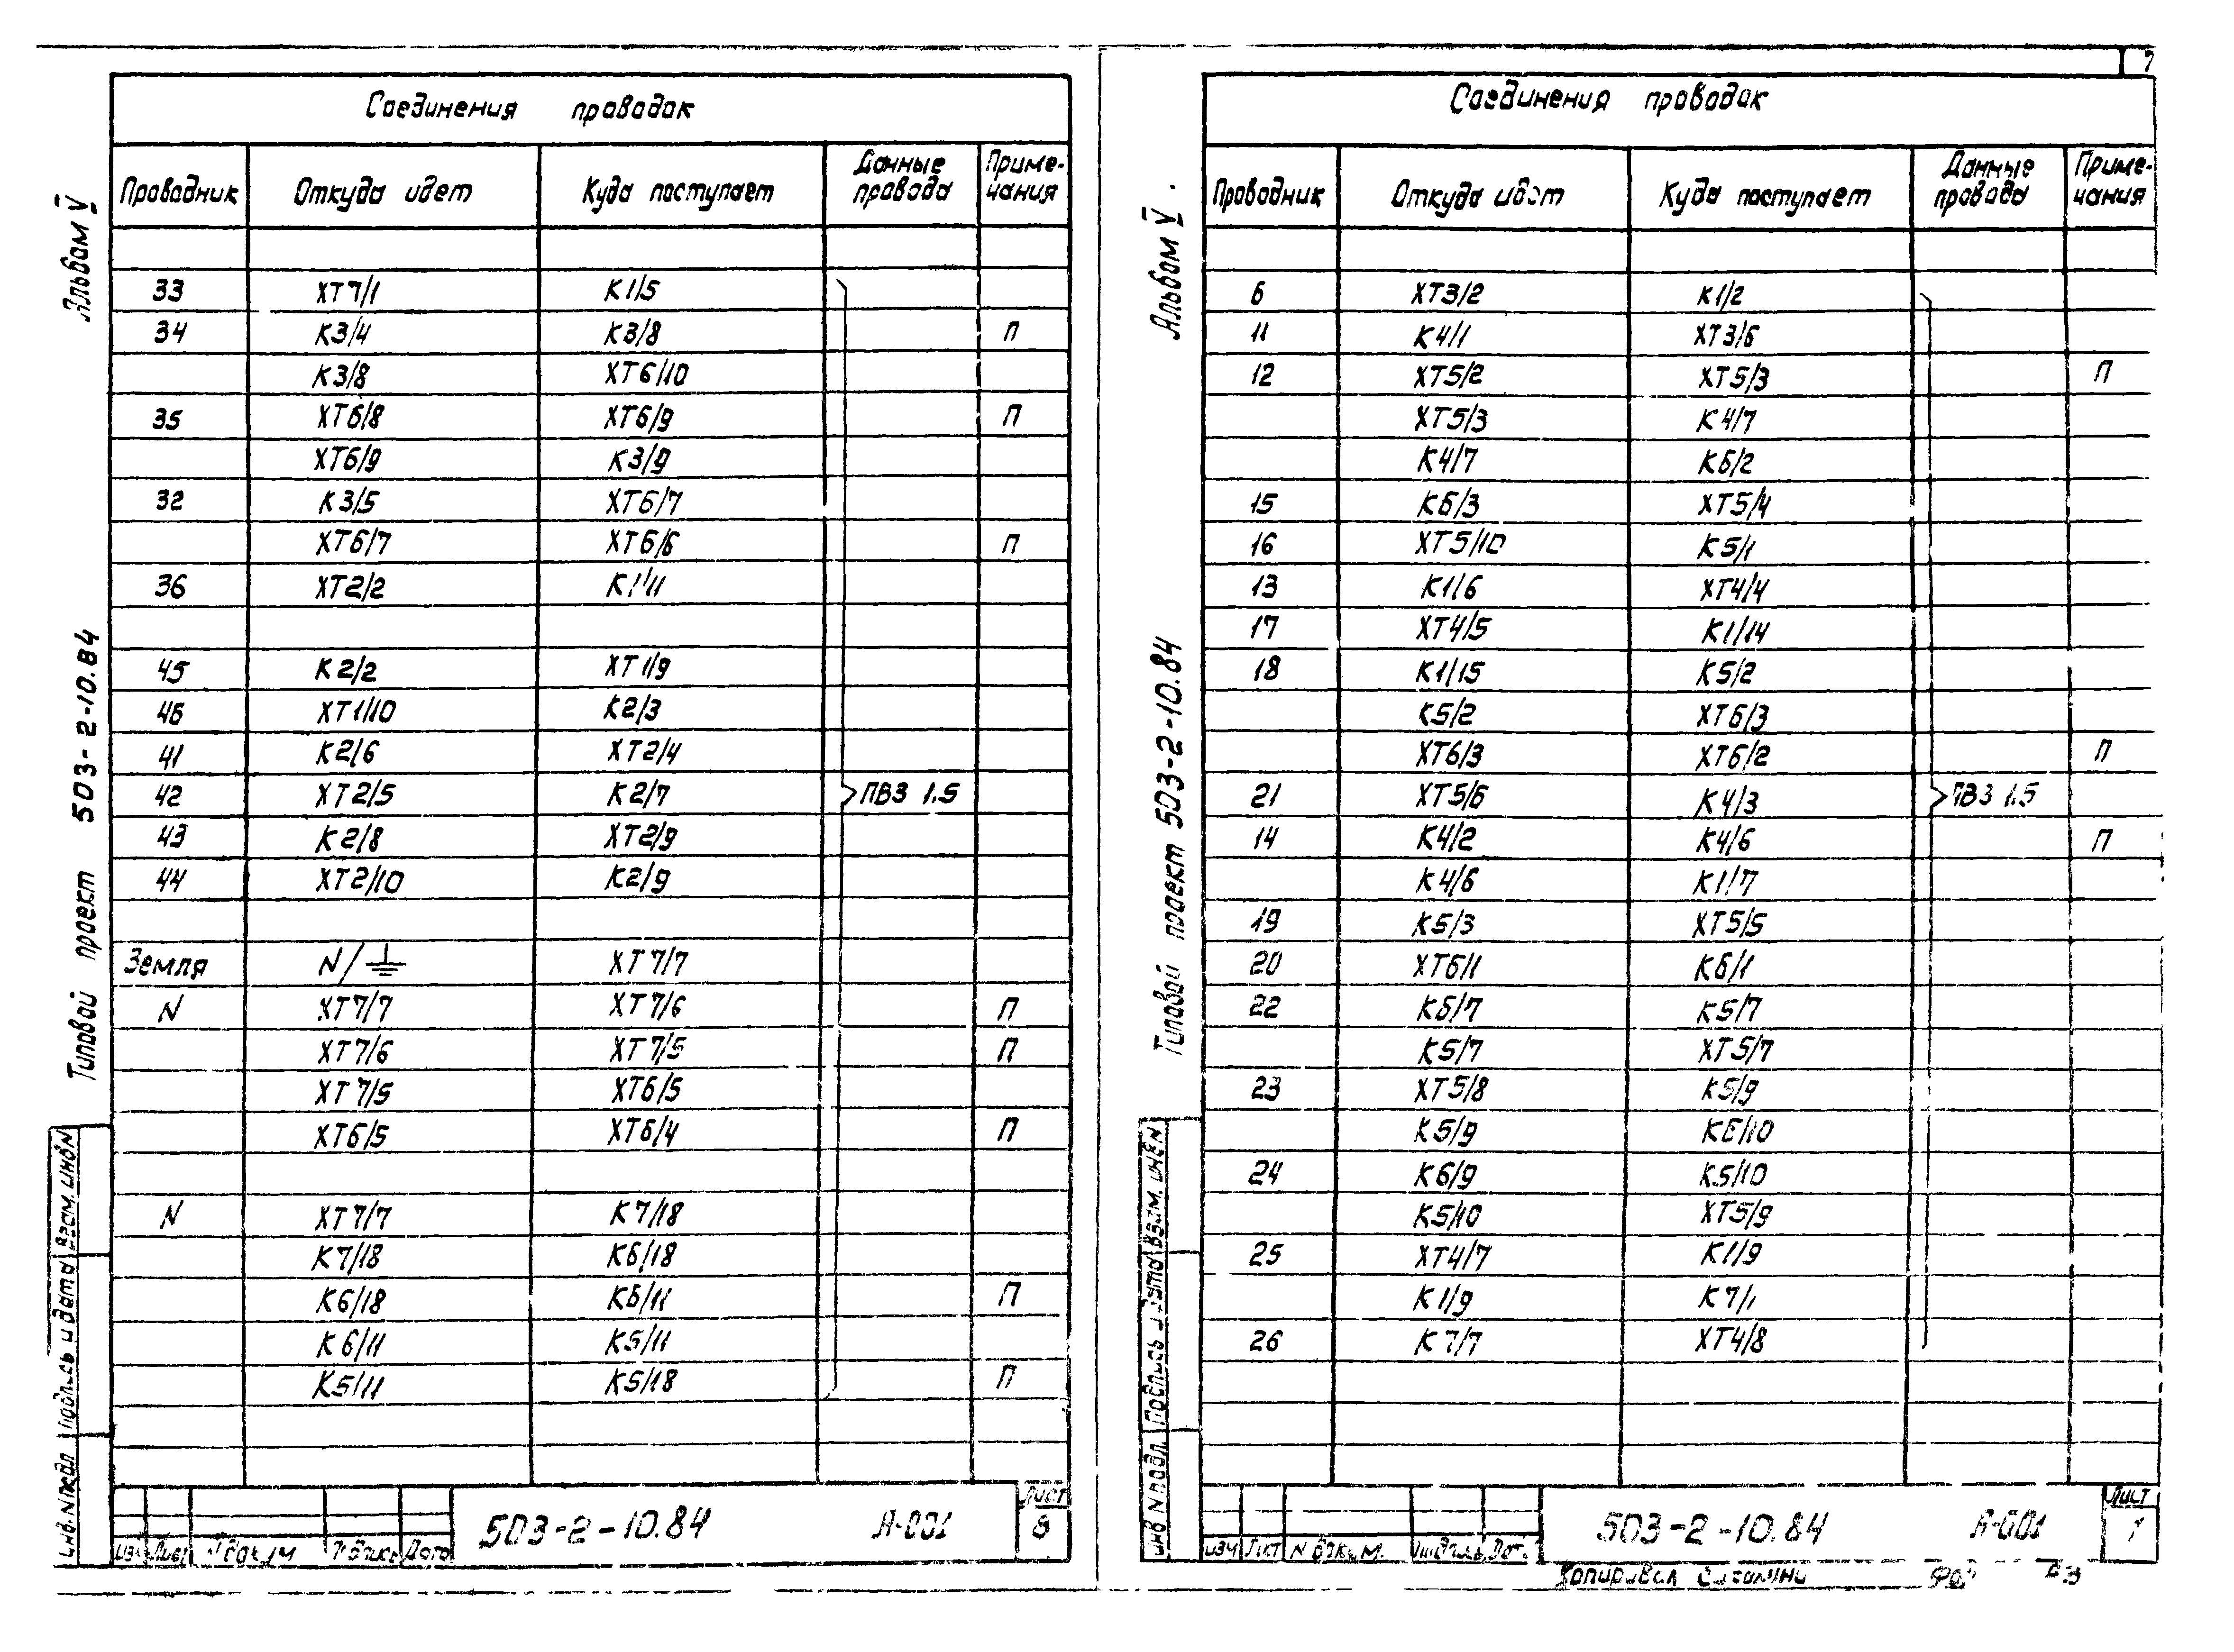 7
Соединения проводок
Проводник Откуда идет Куда поступает Данные провода Примечания
33 XT7/1 K1/5
34 K3/4 K3/8 П
K3/8 XT6/10
35 XT6/8 XT6/9 П
XT6/9 K3/9
32 K3/5 XT6/7
XT6/7 XT6/6 П
36 XT2/2 K1/11
45 K2/2 XT1/9
46 XT1/10 K2/3
41 K2/6 XT2/4
42 XT2/5 K2/7 ПВ3 1.5
43 K2/8 XT2/9
44 XT2/10 K2/9
Земля N/⏚ XT7/7
N XT7/7 XT7/6 П
XT7/6 XT7/5 П
XT7/5 XT6/5
XT6/5 XT6/4 П
N XT7/7 K7/18
K7/18 K6/18
K6/18 K6/11 П
K6/11 K5/11
K5/11 K5/18 П
Альбом V
Типовой проект 503-2-10.84
Инв. N подл Подпись и дата Взам. инв N
Изм Лист N докум Подпись Дата
503-2-10.84 А-001
Лист
8
Соединения проводок
Проводник Откуда идет Куда поступает Данные провода Примечания
6 XT3/2 K1/2
11 K4/1 XT3/6
12 XT5/2 XT5/3 П
XT5/3 K4/7
K4/7 K6/2
15 K6/3 XT5/4
16 XT5/10 K5/1
13 K1/6 XT4/4
17 XT4/5 K1/14
18 K1/15 K5/2
K5/2 XT6/3
XT6/3 XT6/2 П
21 XT5/6 K4/3 ПВ3 1.5
14 K4/2 K4/6 П
K4/6 K1/7
19 K5/3 XT5/5
20 XT6/1 K6/1
22 K6/7 K5/7
K5/7 XT5/7
23 XT5/8 K5/9
K5/9 K6/10
24 K6/9 K5/10
K5/10 XT5/9
25 XT4/7 K1/9
K1/9 K7/1
26 K7/7 XT4/8
Альбом V.
Типовой проект 503-2-10.84
Инв N подл. Подпись и дата Взам. инв N
Изм Лист N докум. Подпись Дат.
503-2-10.84 А-001
Лист
7
Копировал